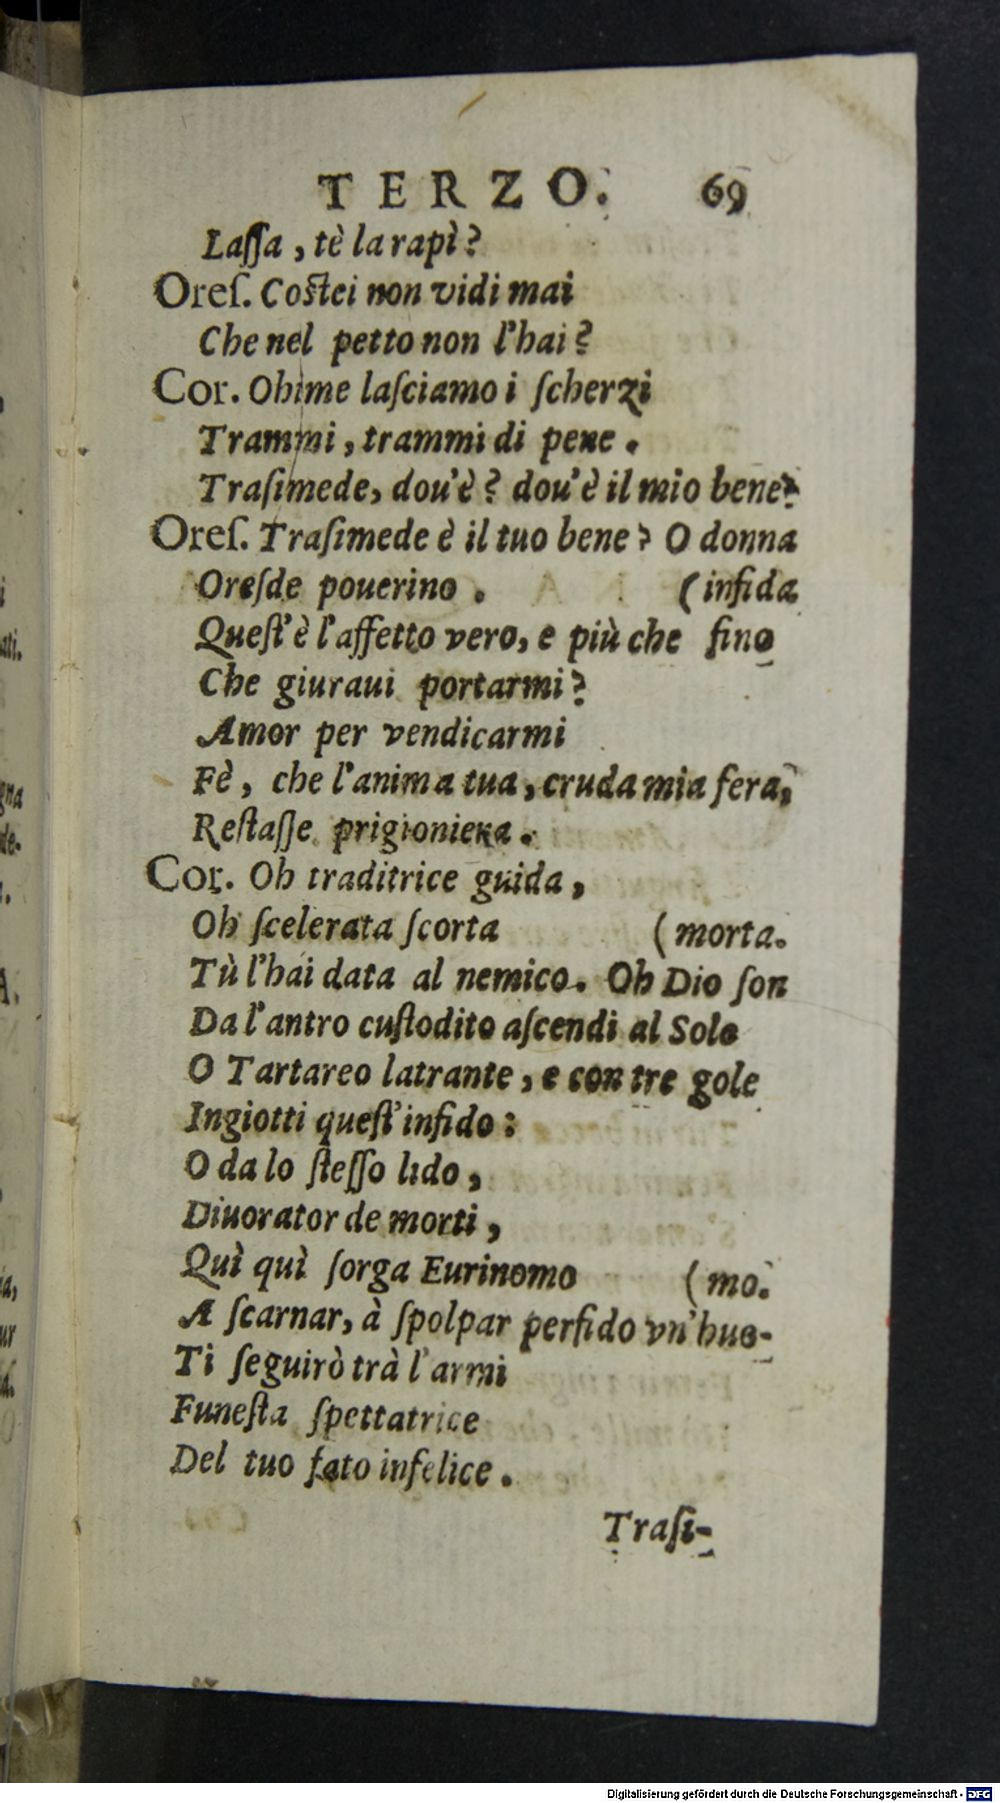 TERZO. 69
Laſſa, tè la rapì?
Oreſ. Coſtei non vidi mai
Che nel petto non l'hai?
Cor. Ohime laſciamo i ſcherzi
Trammi, trammi di pene.
Traſimede, dou'è? dou'è il mio bene?
Oreſ. Traſimede è il tuo bene? O donna
Oreſde pouerino. (infida
Queſt'è l'affetto vero, e più che fino
Che giuraui portarmi?
Amor per vendicarmi
Fè, che l'anima tua, cruda mia fera,
Reſtaſſe prigioniera.
Cor. Oh traditrice guida,
Oh ſcelerata ſcorta (morta.
Tù l'hai data al nemico. Oh Dio ſon
Da l'antro cuſtodito aſcendi al Sole
O Tartareo latrante, e con tre gole
Ingiotti queſt'infido:
O da lo ſteſſo lido,
Diuorator de morti,
Quì quì ſorga Eurinomo (mo.
A ſcarnar, à ſpolpar perfido vn'huo-
Ti ſeguirò trà l'armi
Funeſta ſpettatrice
Del tuo fato infelice.
Traſi-
Digitalisierung gefördert durch die Deutsche Forschungsgemeinschaft - DFG